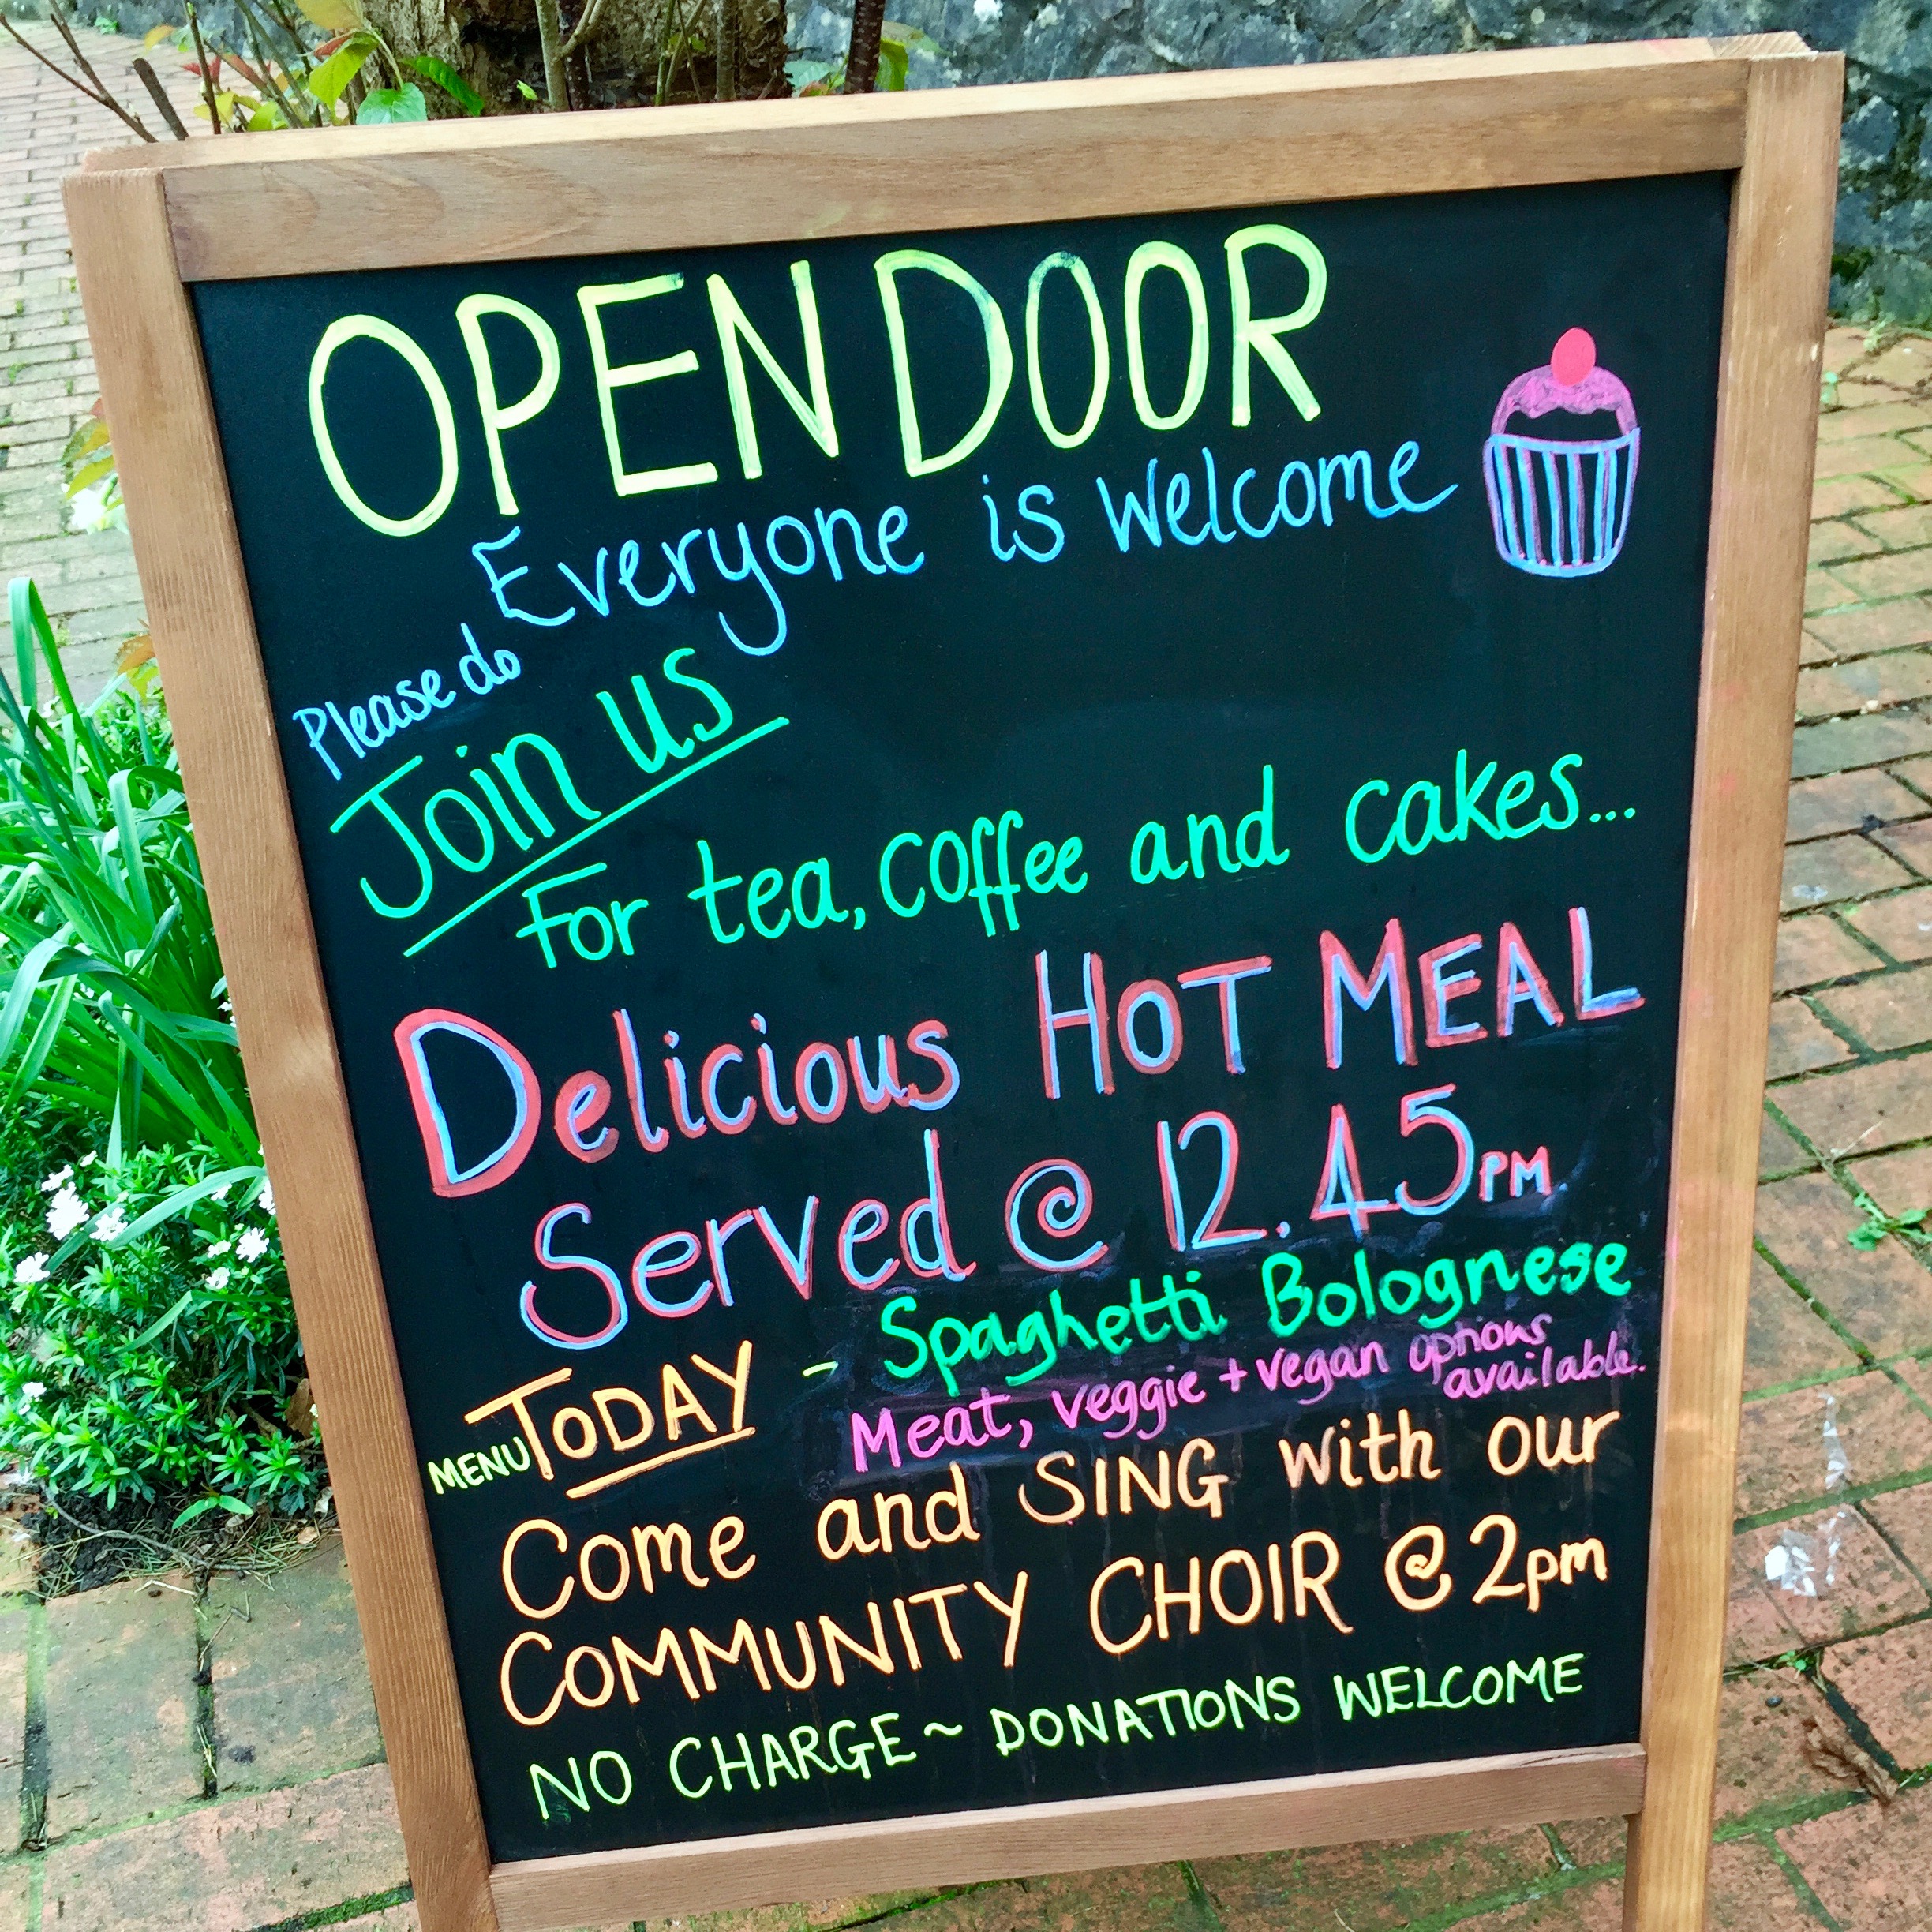 OPEN DOOR
Everyone is welcome
Please do
Join us
For tea, coffee and cakes...
Delicious HOT MEAL
Served @ 12.45PM
MENU TODAY - Spaghetti Bolognese
Meat, veggie + vegan options
available.
Come and SING with our
COMMUNITY CHOIR @ 2pm
NO CHARGE ~ DONATIONS WELCOME